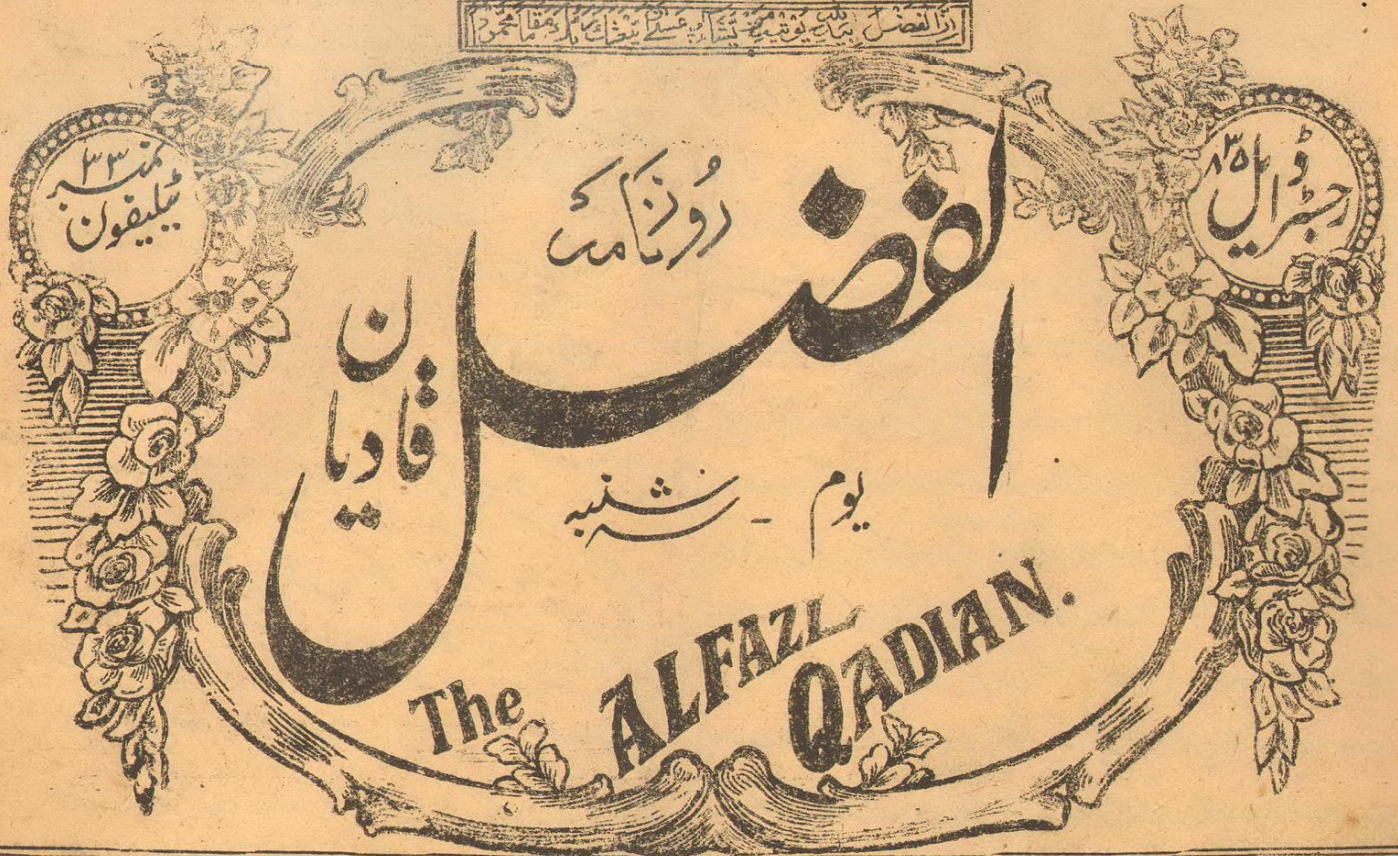 ان الفضل بيد الله يؤتيه من يشاء عسىٰ ان يبعثك ربك مقاما محمودا
رجسٹرڈ ایل ۸۳۵
ٹیلیفون
نمبر ۳۳
روزنامہ
الفضل
قادیان
یوم - سہ شنبہ
The ALFAZL
QADIAN.